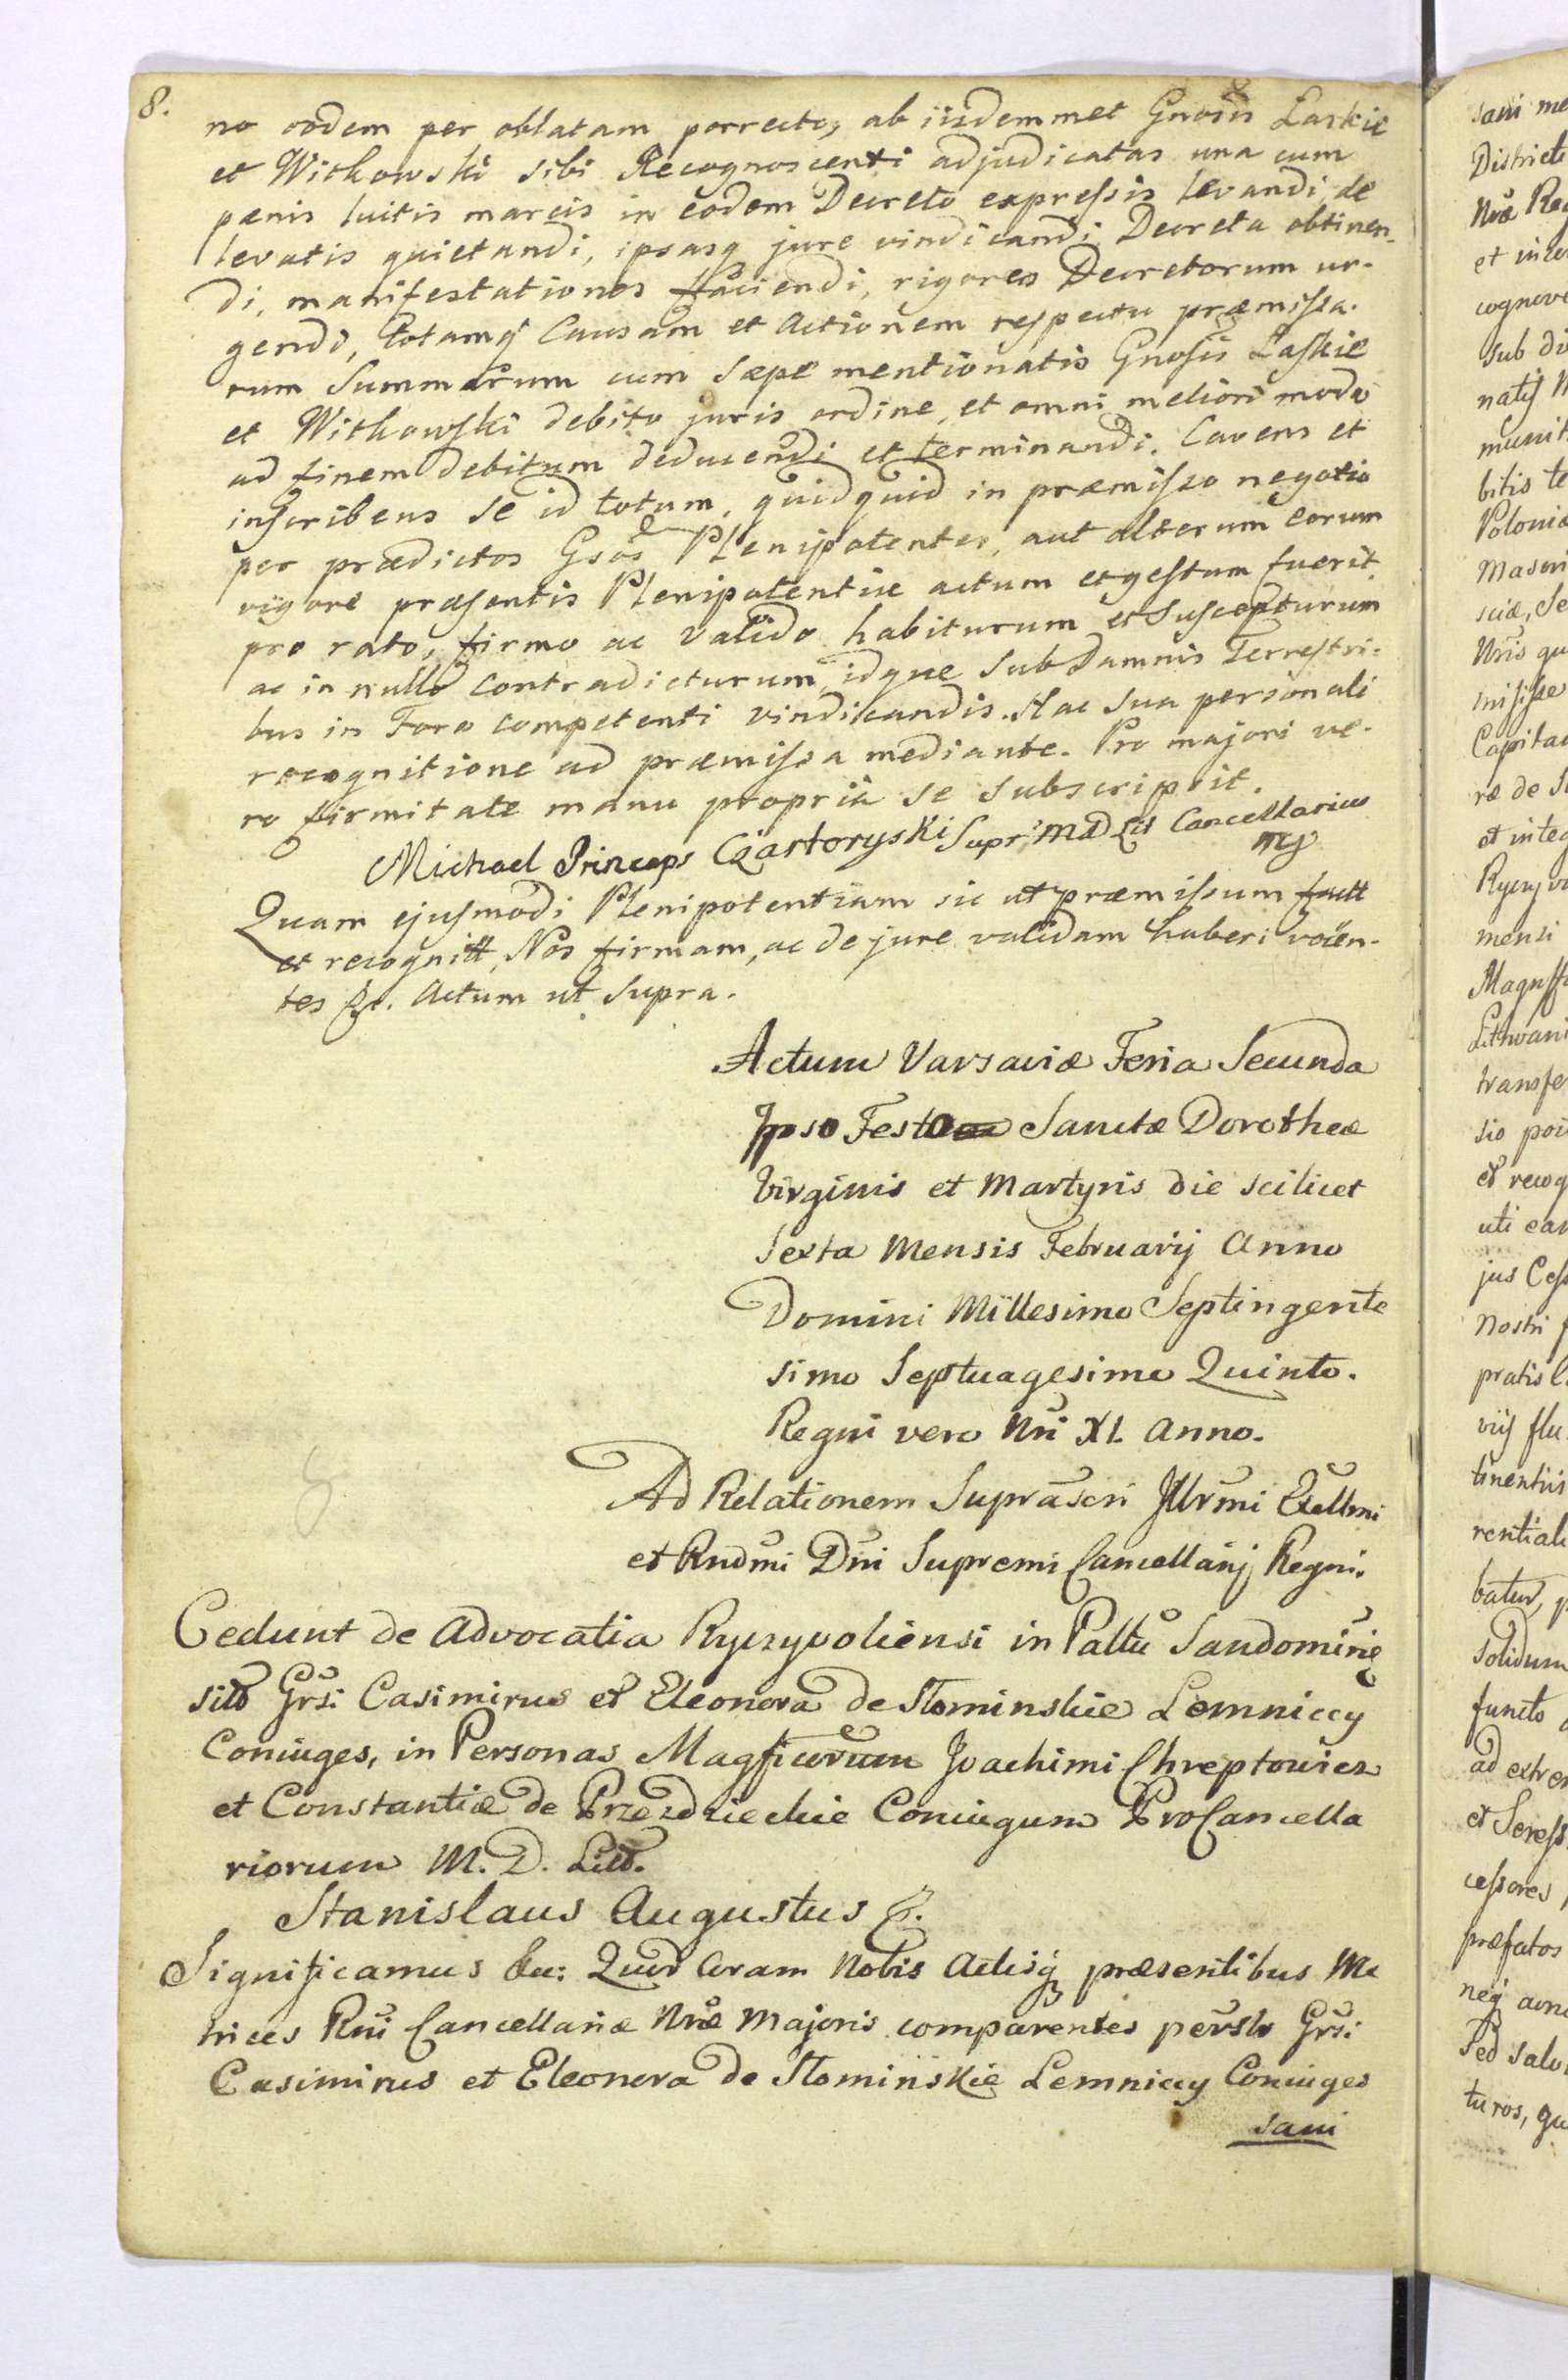 8.
no eodem per oblatam porrecto, ab iisdemmet Gnosis Laskie
et Witkowski sibi Recognoscenti adjudicatas una cum
pœnis luitis marcis in eodem Decreto expressis levandi, de
levatis quietandi, ipsasq jure vindicandi, Decreta obtinen-
di, manifestationes faciendi, rigores Decretorum ur-
gendi, totamq Causam et Actionem respectu præmissa-
rum Summarum cum sæpe mentionatis Gnosis Laskie
et Witkowski debito juris ordine, et omni meliori modo
ad finem debitum deducendi et terminandi. Cavens et
inscribens se id totum, quidquid in præmisso negotio
per prædictos Gsos Plenipotentes, aut alterum eorum
vigore præsentis Plenipotentiæ actum et gestum fuerit,
pro rato, firmo ac valido habiturum et suscepturum
ac in nullo contradicturum, idque sub Damnis Terrestri-
bus in Foro competenti vindicandis. Hac sua personali
recognitione ad præmissa mediante. Pro majori ve-
ro firmitate manu propria se subscripsit.
Michael Princeps Czartoryski Supr: MDLit Cancellarius
mp
Quam ejusmodi Plenipotentiam sic ut præmissum factt
et recognitt, Nos firmam, ac de jure validam haberi volen-
tes &c. Actum ut Supra.
Actum Varsaviæ Feria Secunda
Ipso Festo Sanctæ Dorotheæ
Virginis et Martyris die scilicet
Sexta Mensis Februarij Anno
Domini Millesimo Septingente
simo Septuagesimo Quinto.
Regni vero Nri XI. Anno.
Ad Relationem Suprascri Illrmi Exellmi
et Rndmi Dni Supremi Cancellarij Regni.
Cedunt de Advocatia Ryczyvoliensi in Pallu Sandomirie
sito Grsi Casimirus et Eleonora de Słominskie Lemniccy
Coniuges, in Personas Magficorum Joachimi Chreptowicz
et Constantiæ de Przezdzieckie Coniugum ProCancella
riorum M. D. Litt.
Stanislaus Augustus &.
Significamus &c: Quod Coram Nobis Actisq præsentibus Me
trices Rni Cancellariæ Nræ Majoris comparentes persltr Grsi
Casimirus et Eleonora de Słominskie Lemniccy Coniuges
sani